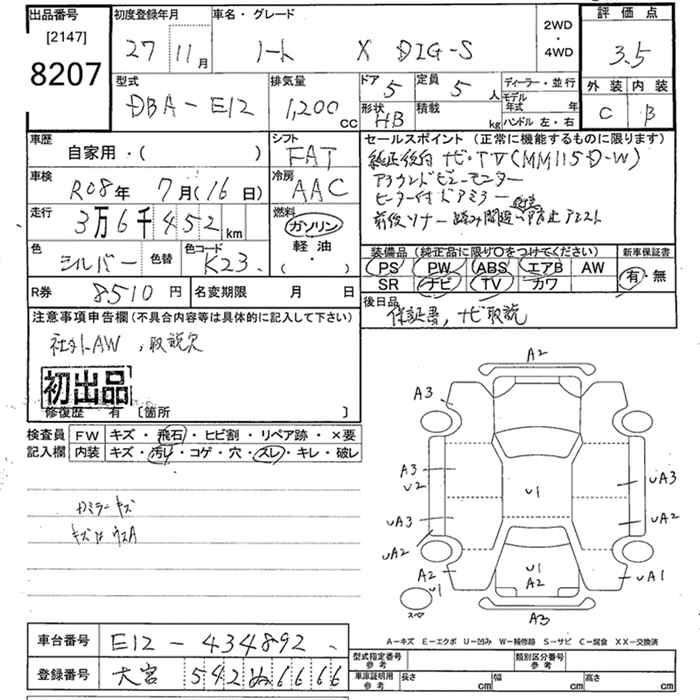 出品番号
[2147]
8207
初度登録年月
27 11月
車名・グレード
ノート X DIG-S
2WD
・
4WD
評価点
3.5
外装 内装
C B
型式
DBA-E12
排気量
1,200cc
ドア 5
形状 HB
定員 5人
積載 kg
ディーラー・並行
モデル年式 年
ハンドル 左・右
車歴
自家用・( )
シフト
FAT
車検
R08年 7月(16日)
冷房
AAC
走行
3万6千452km
燃料
ガソリン
軽油
( ・ )
色
シルバー
色替
色コード
K23
セールスポイント (正常に機能するものに限ります)
純正後付 ナビ・TV(MM115D-W)
アラウンドビューモニター
ヒーター付ドアミラー
前後ソナー 踏み間違い防止アシスト
装備品 (純正品に限り○をつけてください)
PS PW ABS エアB AW
SR ナビ TV カワ
新車保証書
有・無
R券 8510円
名変期限 月 日
後日品
保証書, ナビ取説
注意事項申告欄(不具合内容等は具体的に記入して下さい)
社外AW, 取説欠
初出品
修復歴 有 [箇所 ]
検査員 FW キズ・飛石・ヒビ割・リペア跡・×要
記入欄 内装 キズ・汚レ・コゲ・穴・スレ・キレ・破レ
Dミラーキズ
キズは ウスA
A2
A3
A3
U2
U1
UA3
UA3
UA2
UA2
A2
U1
U1
A2
UA1
A3
A-キズ E-エクボ U-凹み W-補修跡 S-サビ C-腐食 XX-交換済
車台番号 E12-434892
登録番号 大宮 542 ぬ 6666
型式指定番号
参考
類別区分番号
参考
車庫証明用
参考
長さ cm 幅 cm 高さ cm